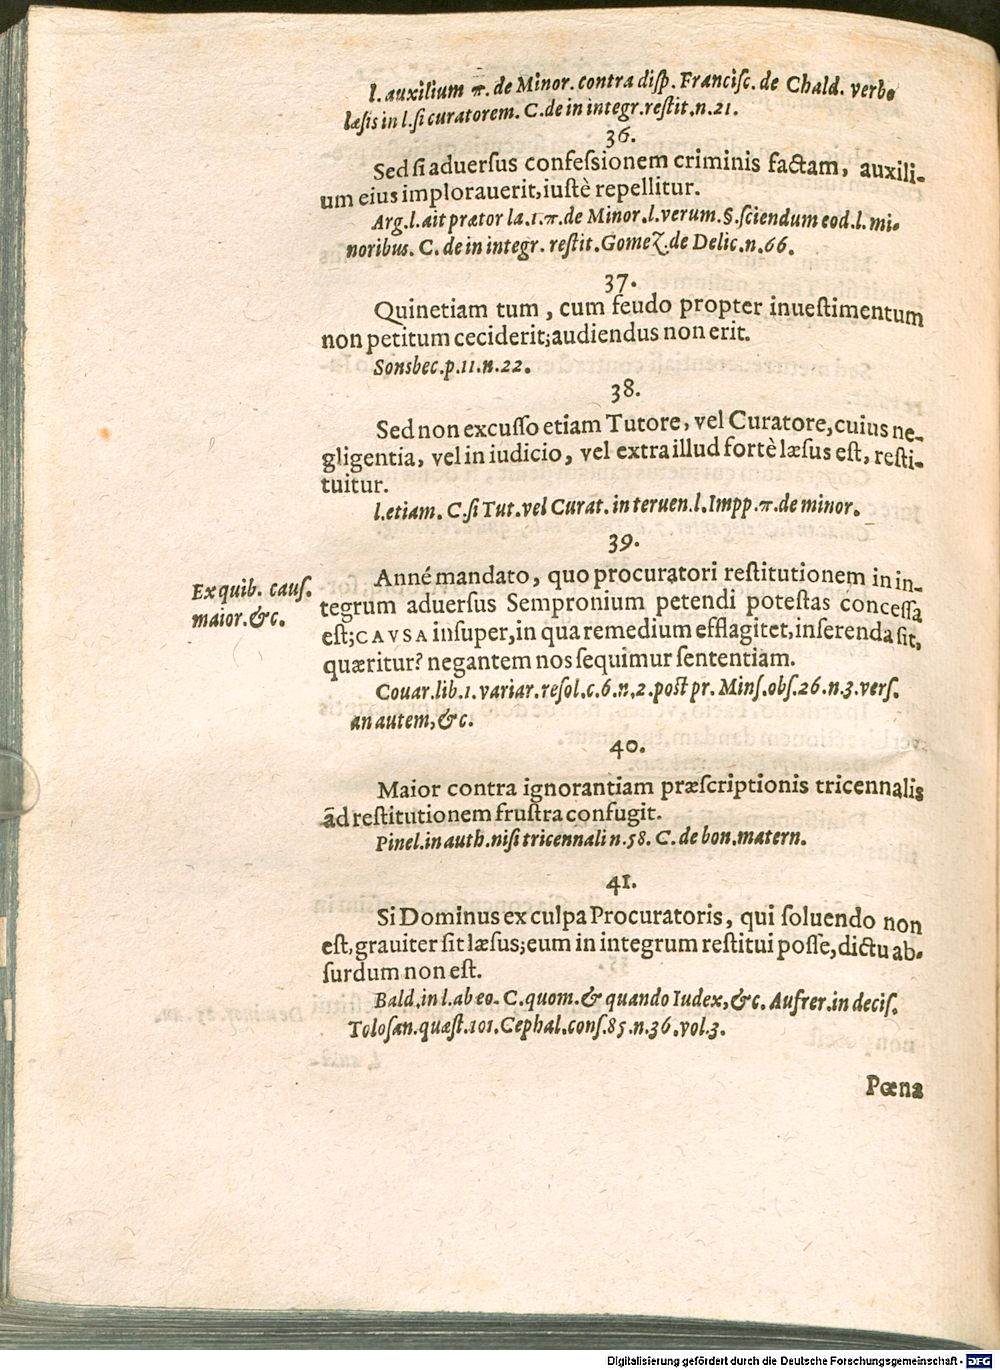 l. auxilium π. de Minor. contra disp. Francisc. de Chald. verbo
læsis in l. si curatorem. C. de in integr. restit. n. 21.
36.
Sed si aduersus confessionem criminis factam, auxili-
um eius implorauerit, iustè repellitur.
Arg. l. ait prætor la. 1. π. de Minor. l. verum. §. sciendum eod. l. mi-
noribus. C. de in integr. restit. Gomez. de Delic. n. 66.
37.
Quinetiam tum, cum feudo propter inuestimentum
non petitum ceciderit; audiendus non erit.
Sonsbec. p. 11. n. 22.
38.
Sed non excusso etiam Tutore, vel Curatore, cuius ne-
gligentia, vel in iudicio, vel extra illud fortè læsus est, resti-
tuitur.
l. etiam. C. si Tut. vel Curat. interuen. l. Impp. π. de minor.
39.
Ex quib. caus.
maior. &c.
Anné mandato, quo procuratori restitutionem in in-
tegrum aduersus Sempronium petendi potestas concessa
est; CAVSA insuper, in qua remedium efflagitet, inserenda sit,
quæritur? negantem nos sequimur sententiam.
Couar. lib. 1. variar. resol. c. 6. n. 2. post pr. Mins. obs. 26. n. 3. vers.
an autem, &c.
40.
Maior contra ignorantiam præscriptionis tricennalis
ad restitutionem frustra confugit.
Pinel. in auth. nisi tricennali n. 58. C. de bon. matern.
41.
Si Dominus ex culpa Procuratoris, qui soluendo non
est, grauiter sit læsus; eum in integrum restitui posse, dictu ab-
surdum non est.
Bald. in l. ab eo. C. quom. & quando Iudex, &c. Aufrer. in decis.
Tolosan. quæst. 101. Cephal. cons. 85. n. 36. vol. 3.
Pœna
Digitalisierung gefördert durch die Deutsche Forschungsgemeinschaft - DFG